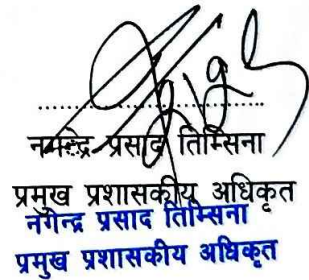 नगेन्द्र प्रसाद तिम्सिना
प्रमुख प्रशासकीय अधिकृत
नगेन्द्र प्रसाद तिम्सिना
प्रमुख प्रशासकीय अधिकृत